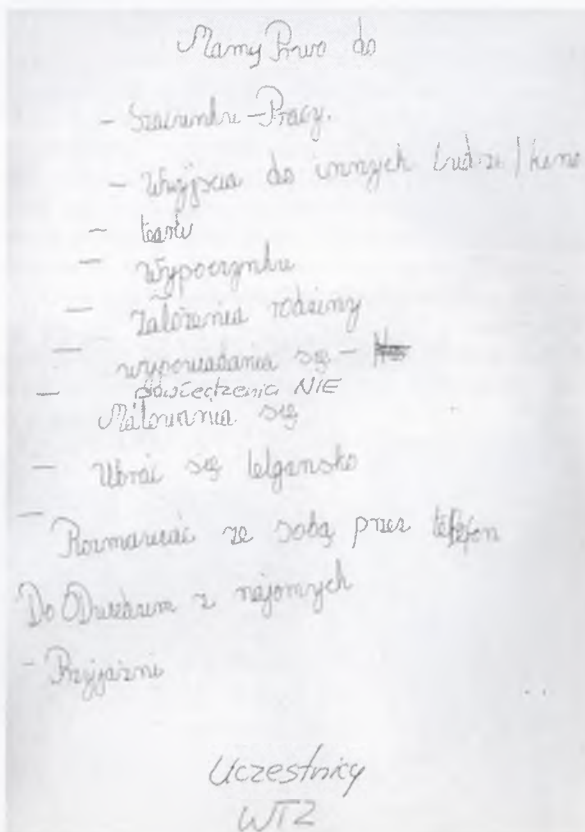 Mamy Prawo do
- Szacunku - Pracy.
- Wyjścia do innych ludzi / kino
- teatru
- wypoczynku
- Założenia rodziny
- wypowiadania się -
- powiedzenia NIE
Malowania się
- Ubrać się
- Rozmawiać ze sobą przez telefon
Do z najomych
- Przyjaźni
Uczestnicy
WTZ